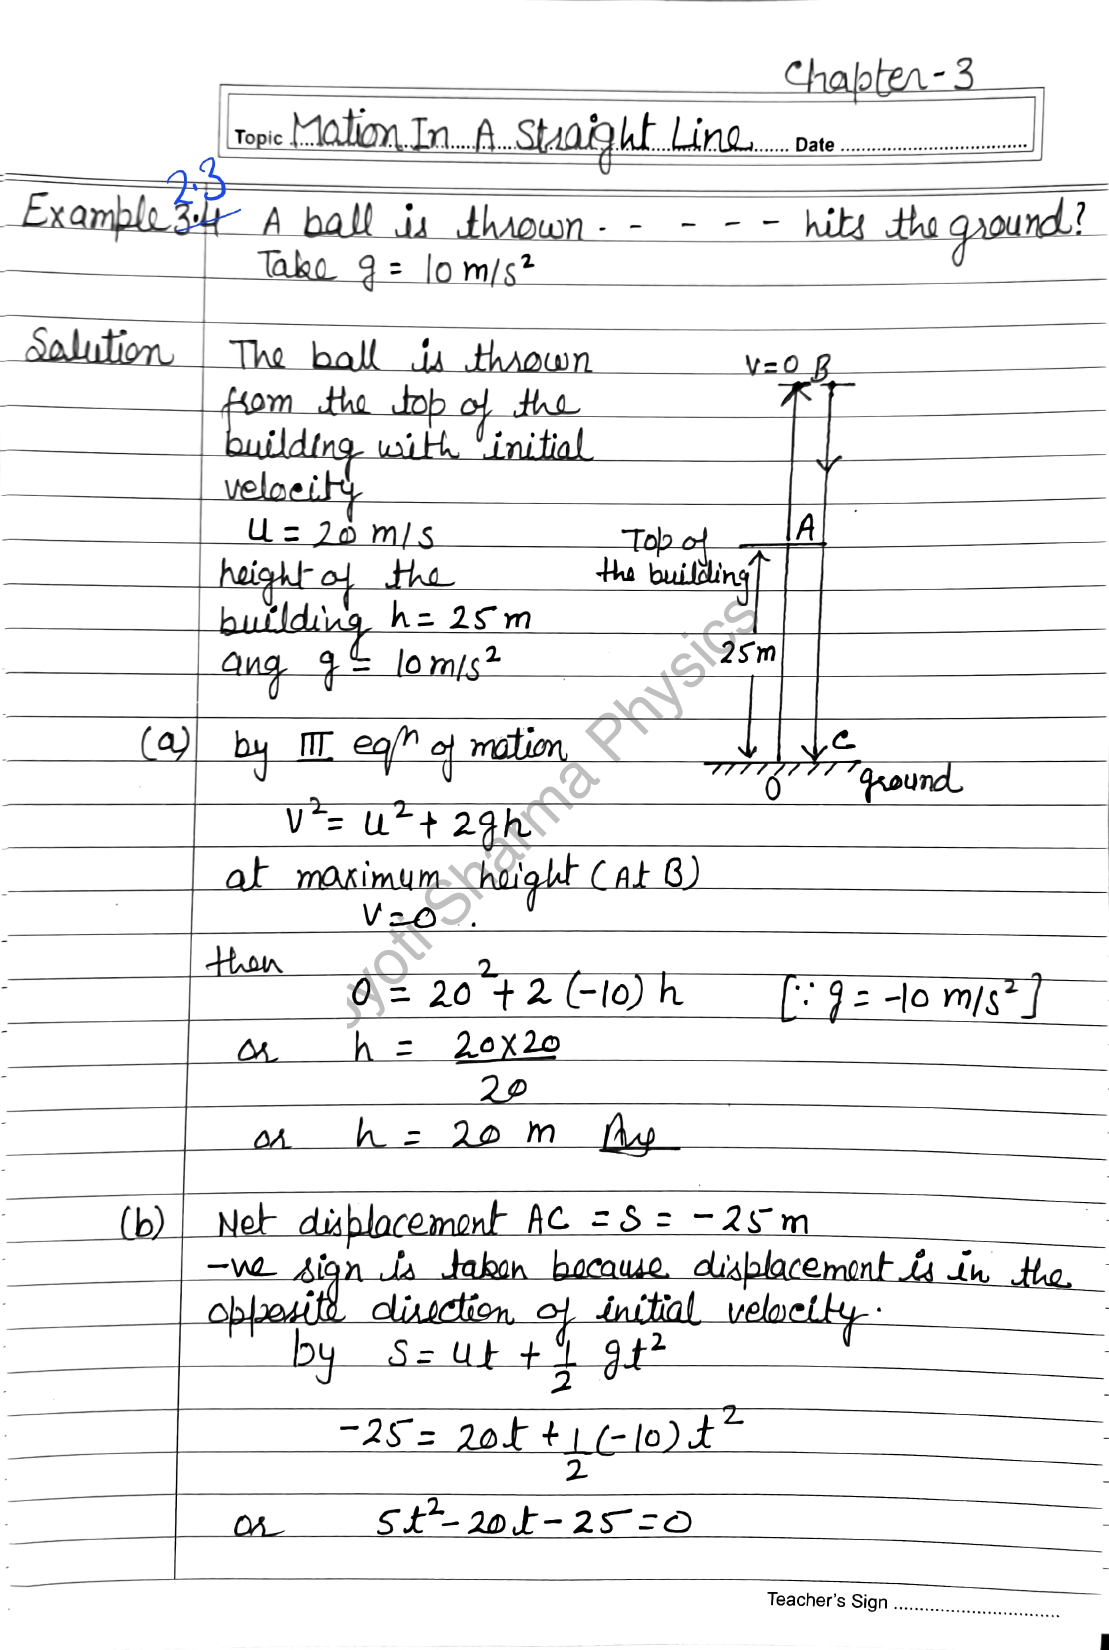 Chapter-3
Topic Mation In A Straight Line Date
2.3
Example 3.4 A ball is thrown - - - - - hits the ground?
Take g = 10 m/s²
Solution The ball is thrown
from the top of the
building with initial
velocity
u = 20 m/s
height of the
building h = 25 m
ang g = 10 m/s²
V=0 B
A
Top of
the building
25m
C
O ground
(a) by III eqⁿ of mation
V² = u² + 2gh
at maximum height (At B)
V=0.
then
0 = 20² + 2 (-10) h [∵ g = -10 m/s²]
or h = 20×20
20
or h = 20 m Ans
(b) Net displacement AC = S = -25 m
-ve sign is taken because displacement is in the
opposite direction of initial velocity.
by S = ut + 1/2 gt²
-25 = 20t + 1/2 (-10) t²
or 5t² - 20t - 25 = 0
Teacher's Sign
Jyoti Sharma Physics